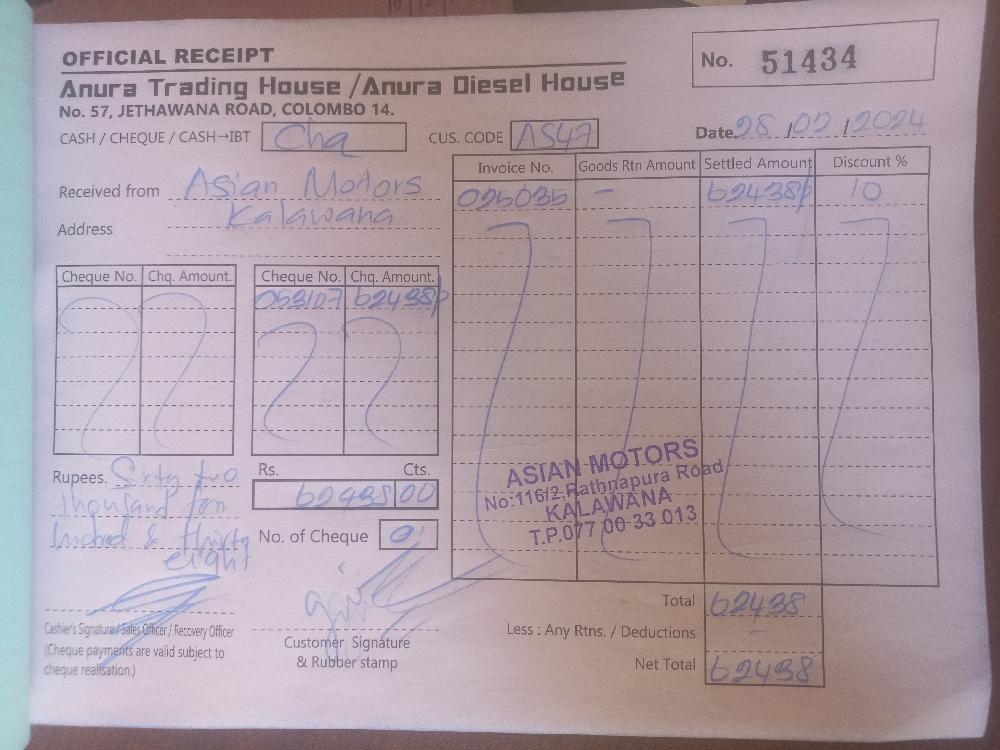 OFFICIAL RECEIPT
No. 51434
Anura Trading House /Anura Diesel House
No. 57, JETHAWANA ROAD, COLOMBO 14.
CASH / CHEQUE / CASH→IBT Chq
CUS. CODE AS47
Date 28 /02 /2024
Received from Asian Motors
Kalawana
Address
Invoice No. Goods Rtn Amount Settled Amount Discount %
025035 – 62438/- 10
Cheque No. Chq. Amount. Cheque No. Chq. Amount.
053107 62438/-
ASIAN MOTORS
No:116/2,Rathnapura Road
KALAWANA
T.P.077 00 33 013
Rupees. Sixty two
thousand four
hundred & thirty
eight
Rs. Cts.
62438 00
No. of Cheque 01
Cashier's Signature / Sales Officer / Recovery Officer
(Cheque payments are valid subject to
cheque realisation.)
Customer Signature
& Rubber stamp
Total 62438
Less : Any Rtns. / Deductions –
Net Total 62438